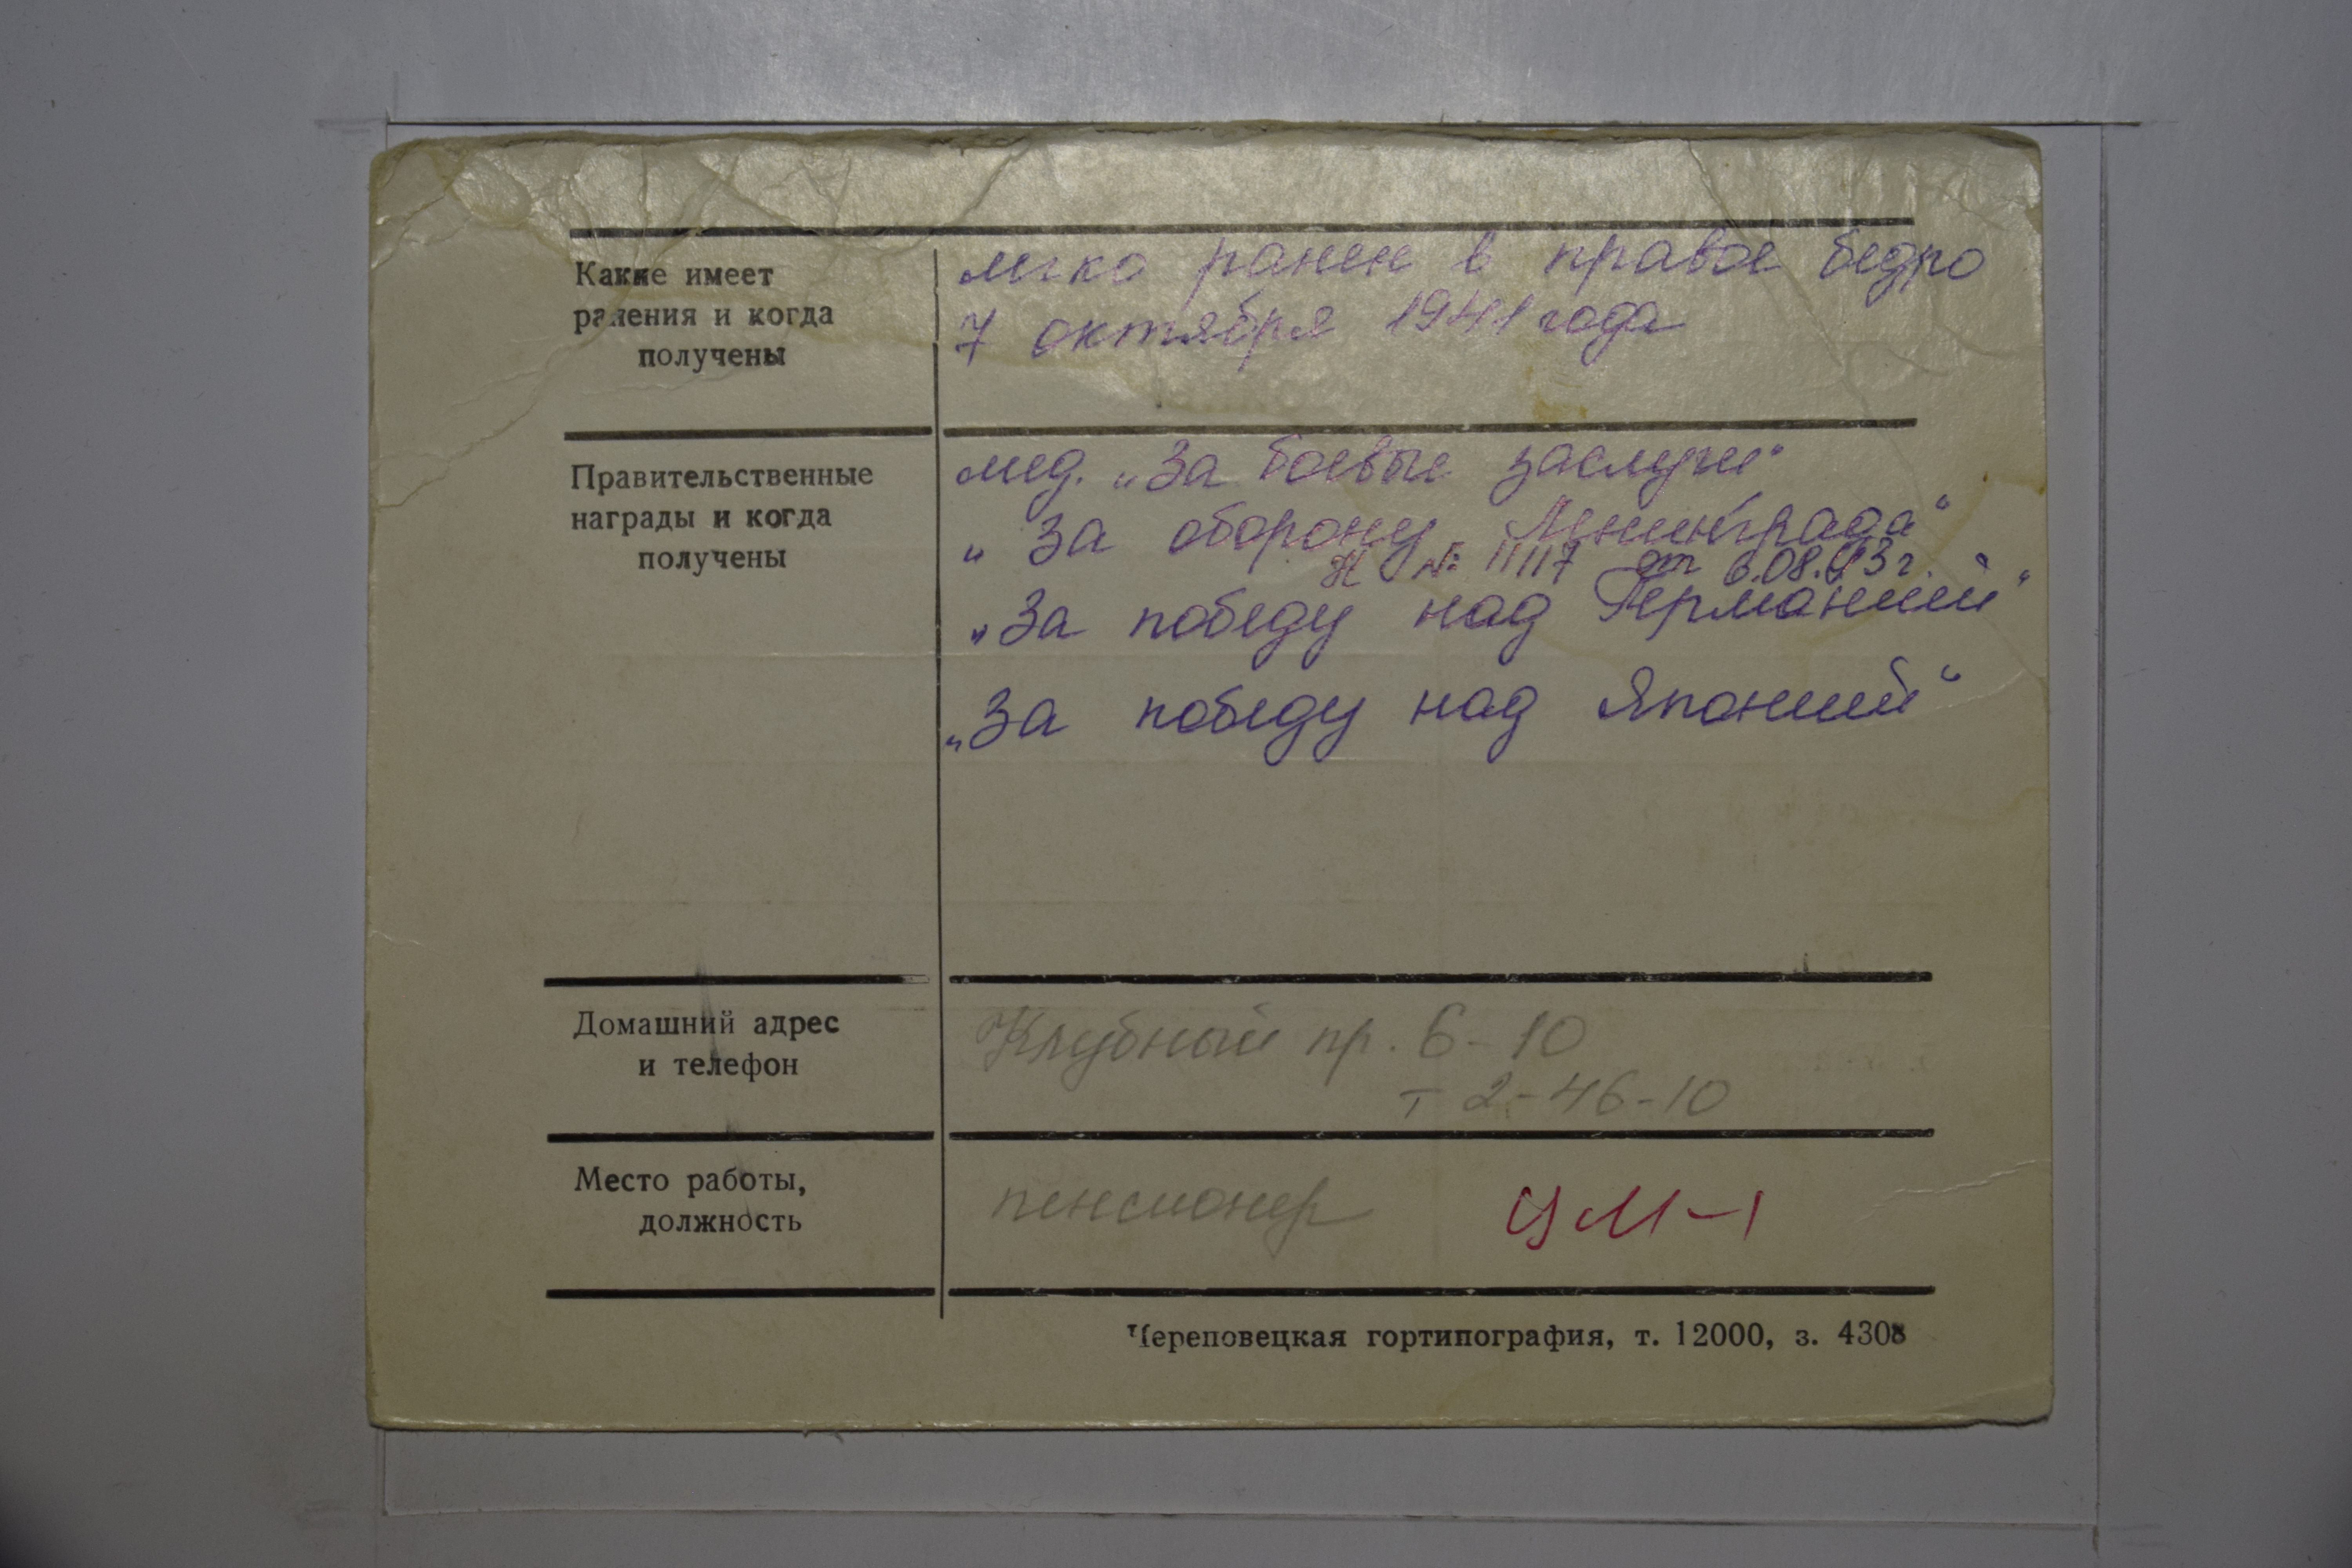 Какие имеет
ранения и когда
получены
легко ранен в правое бедро
7 октября 1941 года
Правительственные
награды и когда
получены
мед. „За боевые заслуги“
„За оборону Ленинграда“
№ 11117 от 6.08.43 г.
„За победу над Германией“
„За победу над Японией“
Домашний адрес
и телефон
Клубный пр. 6-10
т 2-46-10
Место работы,
должность
пенсионер УМ-1
Череповецкая гортипография, т. 12000, з. 4308